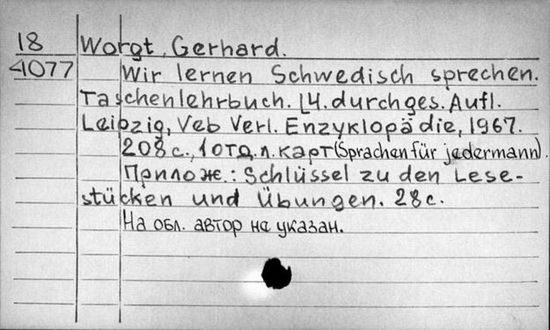 18 Worgt, Gerhard.
4077 Wir lernen Schwedisch sprechen.
Taschenlehrbuch. [4. durchges. Aufl.
Leipzig, Veb Verl. Enzyklopädie, 1967.
208 с., 1 отд. л. карт (Sprachen für jedermann).
Прилож.: Schlüssel zu den Lese-
stücken und Übungen. 28 с.
На обл. автор не указан.